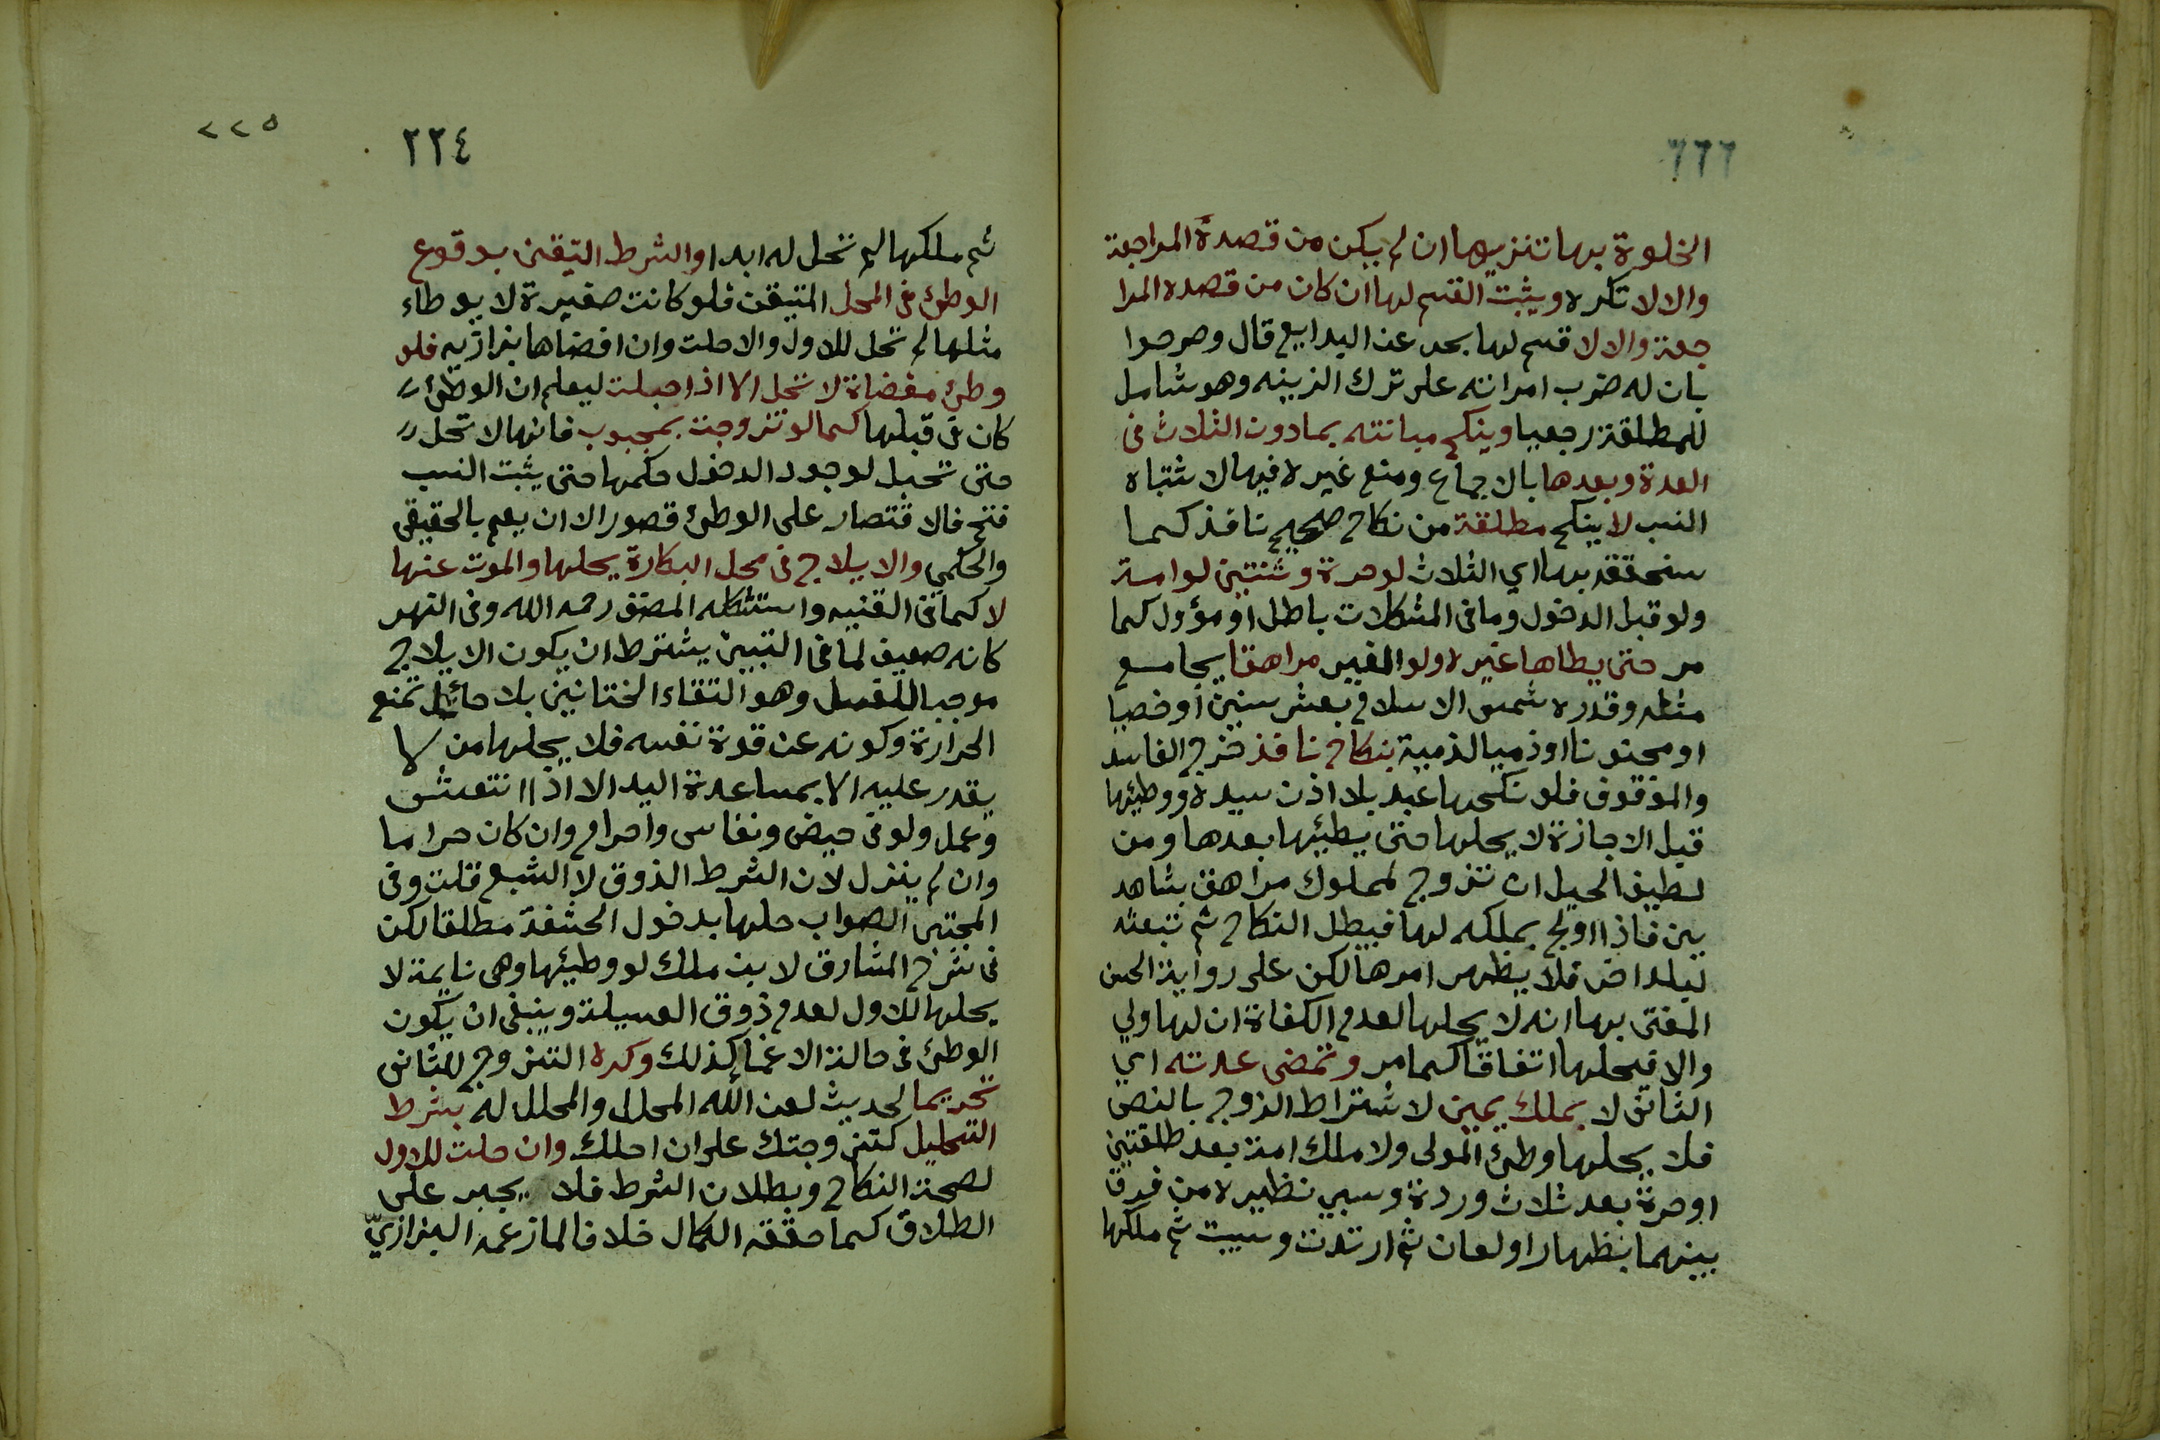 الخلوة بها تنزيها ان لم يكن من قصدة المراجعة
والا لا تكره ويثبت القسم لها ان كان من قصده المرا
جعة والا لا قسم لها بحر عن البدايع قال وصرحوا
بان له ضرب امراته على ترك الزينه وهو شامل
للمطلقة رجعيا وينكح مبانته بمادون الثلاث فى
العدة وبعدها بالاجماع ومنع غيره فيها لاشتباه
النسب لا ينكح مطلقة من نكاح صحيح نافذ كما
سنحققه بها اي الثلاث لو حرة وثنتين لو امة
ولو قبل الدخول وما فى المشكلات باطل او مؤول كما
مر حتى يطاها غيره ولو الغير مراهقا يجامع
مثله وقدره شمس الاسلام بعشر سنين او خصيا
او مجنونا او ذميا لذمية بنكاح نافذ خرج الفاسد
والموقوف فلو نكحها عبد بلا اذن سيده ووطيها
قبل الاجازة لا يحلها حتى يطئها بعدها ومن
لطيف الحيل ان تزوج لمملوك مراهق بشاهد
ين فاذا اولج يملكه لها فيبطل النكاح ثم تبعثه
لبلد اخر فلا يظهر امرها لكن على رواية الحسن
المفتى بها انه لا يحلها لعدم الكفاة ان لها ولي
والا فيحلها اتفاقا كما مر وتمضى عدته اي
الثانى لا بملك يمين لاشتراط الزوج بالنص
فلا يحلها وطئ المولى ولا ملك امة بعد طلقتين
او حرة بعد ثلاث وردة وسبي نظيره من فرق
بينهما بظهار او لعان ثم ارتدت وسبيت ثم ملكها
٢٢٥
٢٢٤
ثم ملكها لم تحل له ابدا والشرط التيقن بوقوع
الوطئ فى المحل المتيقن فلو كانت صغيرة لا يوطاء
مثلها لم تحل للاول والا حلت وان افضاها بزازيه فلو
وطئ مفضاة لا تحل الا اذا حبلت ليعلم ان الوطئ
كان فى قبلها كما لو تزوجت بمجبوب فانها لا تحل
حتى تحبل لوجود الدخول حكما حتى يثبت النسب
فتح فالاقتصار على الوطئ قصور الا ان يعم بالحقيقى
والحكمي والايلاج فى محل البكارة يحلها والموت عنها
لا كما فى القنيه واستشكله المصنف رحمه الله وفى النهر
كانه ضعيف لما فى التبيين يشترط ان يكون الايلاج
موجبا للغسل وهو التقاء الختانين بلا حائل تمنع
الحرارة وكونه عن قوة نفسه فلا يحلها من لا
يقدر عليه الا بمساعدة اليد الا اذا انتعش
وعمل ولو فى حيض ونفاس واحرام وان كان حراما
وان لم ينزل لان الشرط الذوق لا الشبع قلت وفى
المجتبى الصواب حلها بدخول الحشفة مطلقا لكن
فى شرح المشارق لابن ملك لو وطيئها وهى نايمة لا
يحلها للاول لعدم ذوق العسيلة وينبغى ان يكون
الوطئ فى حالة الاغما كذلك وكره التزوج للثانى
تحريما لحديث لعن الله المحلل والمحلل له بشرط
التحليل كتزوجتك على ان احلك وان حلت للاول
لصحة النكاح وبطلان الشرط فلا يجبر على
الطلاق كما حققه الكمال خلافا لما زعمه البزازيّ